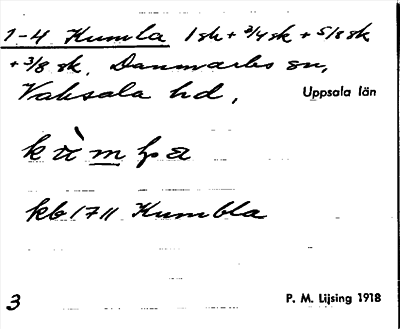 1-4 Kumla 1 sk + 3/4 sk + 5/8 sk
+ 3/8 sk. Danmarks sn,
Vaksala hd,
Uppsala län
kb 1711 Kumbla
3
P. M. Lijsing 1918